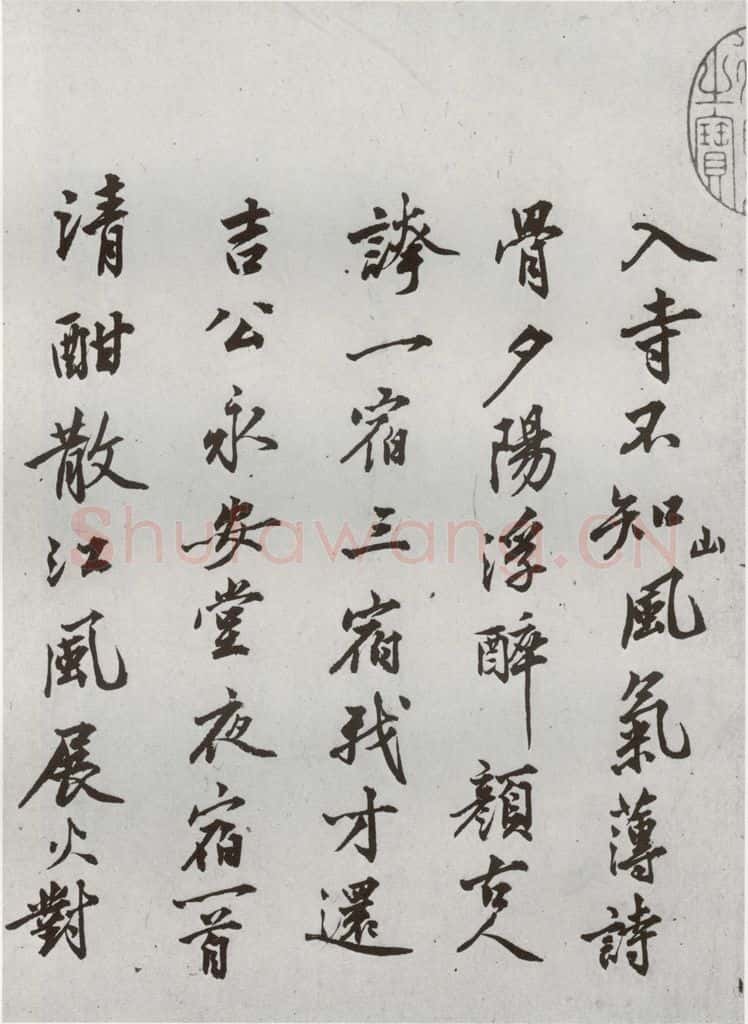 入寺不知風氣薄詩
山
骨夕陽浮醉顏古人
一宿三宿我才還
吉公永安堂夜宿一首
清酣散江風展火對
之寶
Shufawang.CN